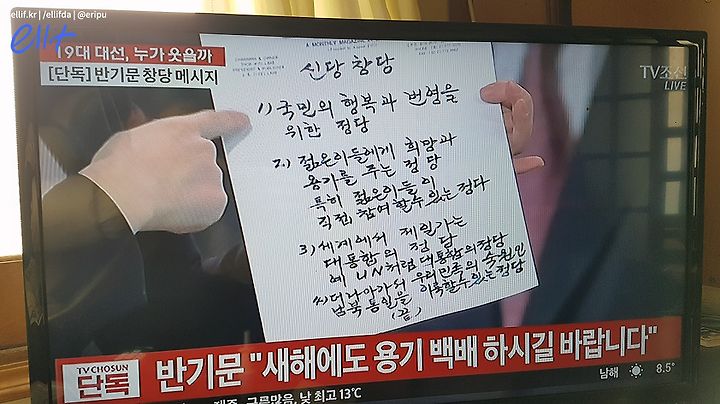 ellif.kr | /ellifda | @eripu
ell+
19대 대선, 누가 웃을까
[단독] 반기문 창당 메시지
TV조선
LIVE
A MONTHLY MAGAZINE
신당 창당
1) 국민의 행복과 번영을
위한 정당
2) 젊은이들에게 희망과
용기를 주는 정당
특히 젊은이들이
직접 참여 할수 있는 정다
3) 세계에서 제일가는
대통합의 정당
예 UN처럼 대통합의 정당
씨 더 나아가서 우리민족의 숙원인
남북통일을 이룩할수 있는 정당
(끝)
TV CHOSUN
단독
반기문 "새해에도 용기 백배 하시길 바랍니다"
남해 8.5°
제주 구름많음, 낮 최고 13℃